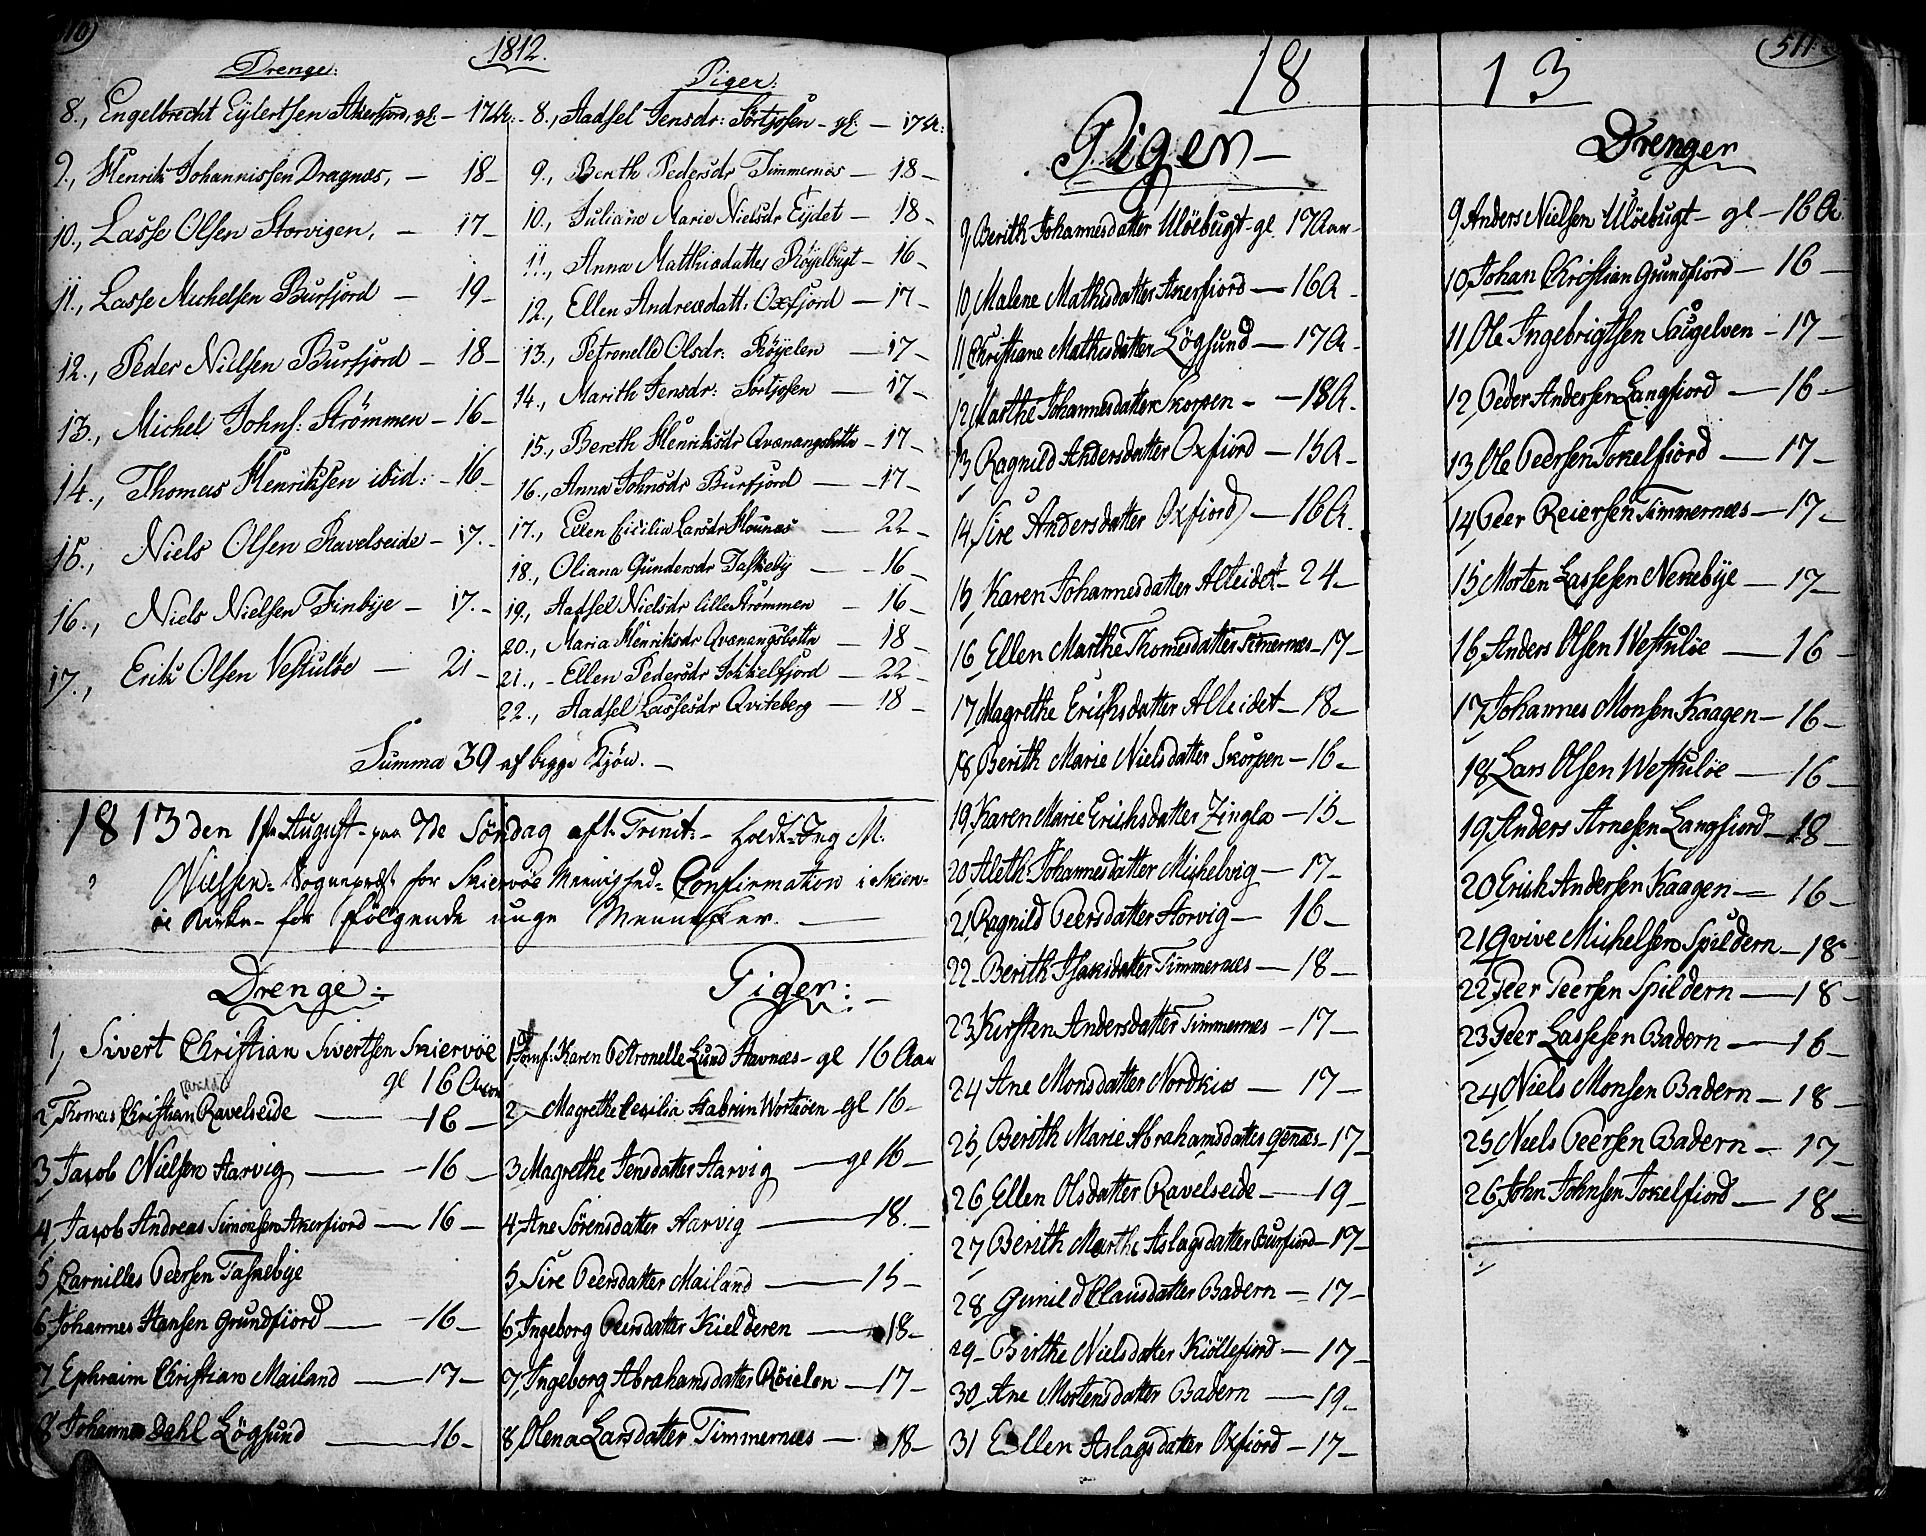 10)
1812.
Drenge:
8., Engelbrecht Eylertsen Akerfjord, gl: – 17 Ar:
9., Henrik Johannissen Dragnæs, – 18 –
10., Lasse Olsen Storvigen, – 17 –
11., Lasse Michelsen Burfjord – 19 –
12., Peder Nielsen Burfjord – 18 –
13., Michel Johns: Strømmen – 16 –
14., Thomas Henriksen ibid: – 16 –
15., Niels Olsen Ravelseide – 17. –
16., Niels Nielsen Finbye – 17. –
17., Erik Olsen Vestuløe – 21 –
Piger:
8., Aadsel Jensdr: Sørtjosen – gl: – 17 A:
9., Berth Pedersdr Timmernæs – 18 –
10., Juliane Marie Nielsdr Eijdet – 18 –
11., Anna Matthisdatter Røyelbugt – 16 –
12., Ellen Andreædatt: Oxfjord – 17 –
13., Petronelle Olsdr: Røyelen – 17 –
14., Marith Jensdr: Sørtjosen – 17 –
15., Bereth Henriksdr Qvænangsbotn – 17 –
16., Anna Johnsdr Burfjord – 17 –
17., Ellen Cicilia Larsdr Hounæs – 22 –
18., Oliana Gundersdr Taskeby – 16 –
19., Aadsel Nielsdr lille Strømmen – 16 –
20., Maria Henriksdr Qvænangsbotn – 18 –
21., – Ellen Pedersdr Jokkelfjord – 22 –
22., Aadsel Lassesdr Qviteberg – 18 –
Summa 39 af begge Kjøn. –
1813 den 1ste August – paa 7de Søndag aft: Trinit: – holdt Ing M.
Nielsen – Sognepræst for Skiervøe Meenighed – Confirmation i Skier-
øe Kirke – for følgende unge Mennisker. –
Drenge:
1, Sivert Christian Sivertsen Skiervøe
gl 16 Aar
2 Thomas Christian Ravelseide – 16 –
3 Jacob Nielsen Aarvig – 16 –
4, Jacob Andreas Simonsen Akerfiord – 16 –
5 Carnilles Peersen Tasnebye
6 Johannes Hansen Grundfiord – 16 –
7, Ephraim Christian Mailand – 17 –
8 Johannes Dahl Løgsund – 16 –
Piger: –
1, Jomf: Karen Petronelle Lund Havnæs – gl 16 Aar
2, Magrethe Cecilia Habriin Wortøen – gl 16 –
3 Magrethe Jensdatter Aarvig – gl 16 –
4, Ane Sørensdatter Aarvig – 18. –
5 Sire Peersdatter Mailand – 15 –
6, Ingeborg Peersdatter Kielderen – 18 –
7, Ingeborg Abrahamsdatter Røielen – 17 –
8, Olena Larsdatter Timmernæs – 18 –
1813
511
Piger –
9, Berith Johannesdatter Uløebugt – gl 17 Aar –
10, Malene Mathisdatter Akerfiord – 16 A –
11 Christiane Mathisdatter Løgsund – 17 A –
12 Marthe Johannesdatter Skorpen – 18 A.
13 Ragnild Andersdatter Oxfiord – 15 A –
14 Sire Andersdatter Oxfiord – 16 A.
15, Karen Johannesdatter Alteidet – 24 –
16 Ellen Marthe Thomesdatter Timernæs – 17 –
17 Magrethe Erichsdatter Alteidet – 18 –
18 Berith Marie Nielsdatter Skorpen – 16 –
19, Karen Marie Erichsdatter Zinglo – 15 –
20 Aleth Johannesdatter Michelvig – 17 –
21 Ragnild Peersdatter Storvig – 16 –
22 – Berith Isaksdatter Timmernæs – 18 –
23 Kirsten Andersdatter Timmernes – 17 –
24 Ane Monsdatter Nordkios – 17 –
25, Berith Marie Abrahamsdatter Qvnæs – 17 –
26, Ellen Olsdatter Ravelseide – 19 –
27 Berith Marthe Aslagsdatter Burfiord – 17 –
28 Gunild Clausdatter Badern – 17 –
29 – Birthe Nielsdatter Kiøllefiord – 17 –
30 – Ane Mortensdatter Badern – 19 –
31 Ellen Aslagsdatter Oxfiord – 17 –
Drenger
9 Anders Nielsen Uløebugt – gl – 16 A.
10 Johan Christian Grundfiord – 16 –
11 Ole Ingebrigtsen Saugelven – 17 –
12 Peder Andersen Langfiord – 16 –
13 Ole Peersen Jokelfiord – 17 –
14 Peer Reiersen Timmernæs – 17 –
15 Morten Lassesen Nekebye – 17 –
16, Anders Olsen Westuløe – 16 –
17 Johannes Monsen Kaagen – 16 –
18 Lars Olsen Westuløe – 16 –
19 Anders Arnesen Langfiord – 18 –
20 Erich Andersen Kaagen – 16 –
21 Qvive Michelsen Spildern – 18 –
22 Peer Peersen Spildern – 18 –
23 Peer Lassesen Badern – 16 –
24 Niels Monsen Badern – 18 –
25 Neels Peersen Badern – 17 –
26 John Johnsen Jokelfiord – 18 –